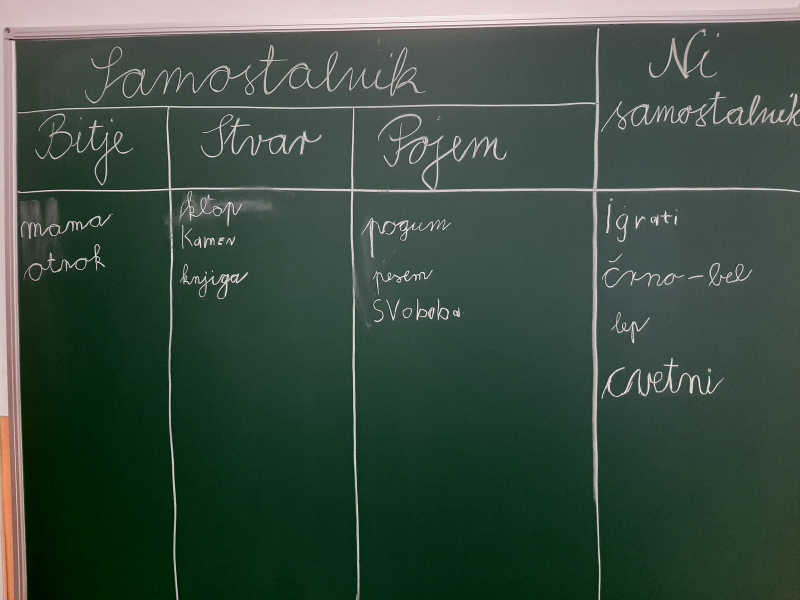 Samostalnik
Ni
samostalnik
Bitje
Stvar
Pojem
mama
otrok
klop
Kamen
knjiga
pogum
pesem
SVoboba
igrati
črno-bel
lep
cvetni